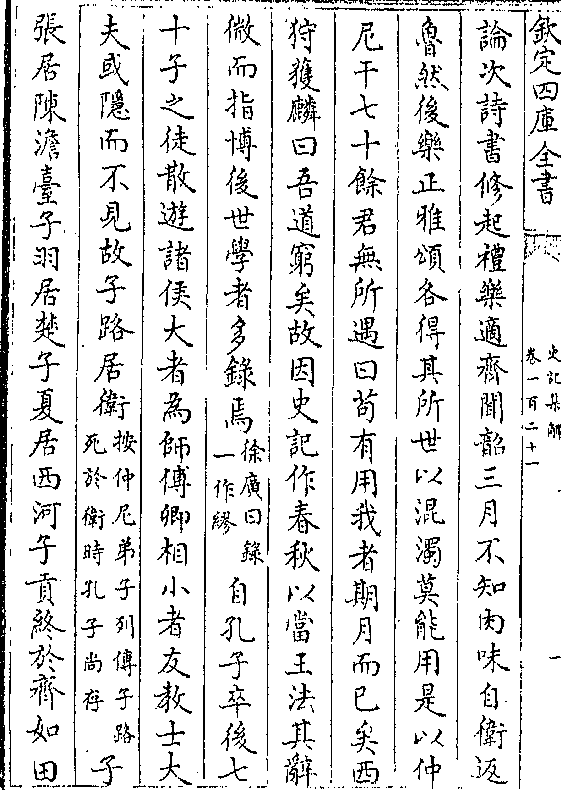 欽定四庫全書
史記集解
卷一百二十一
一
論次詩書修起禮樂適齊聞韶三月不知肉味自衛返
魯然後樂正雅頌各得其所世以混濁莫能用是以仲
尼干七十餘君無所遇曰苟有用我者期月而已矣西
狩獲麟曰吾道窮矣故因史記作春秋以當王法其辭
微而指博後世學者多錄焉徐廣曰錄一作繆自孔子卒後七
十子之徒散遊諸侯大者為師傅卿相小者友教士大
夫或隱而不見故子路居衛按仲尼弟子列傳子路死於衛時孔子尚存子
張居陳澹臺子羽居楚子夏居西河子貢終於齊如田